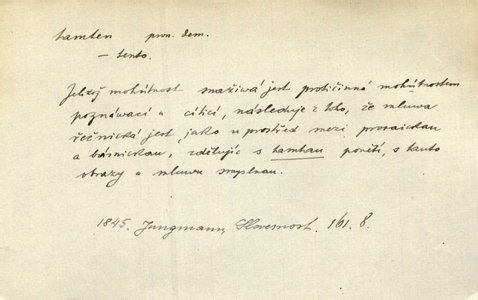 tamten pron. dem.
— tento.
Jelikož mohútnost snaživá jest protičinná mohútnostem
poznávací a cítící, následuje z toho, že mluwa
řečnická jest, jako u prostřed mezi prosaickau
a básnickau, zděłujíc s tamtau ponětí, s tauto
obrazy a mluwu smyslnau.
1845. Jungmann, Slovesnost. 161. 8.